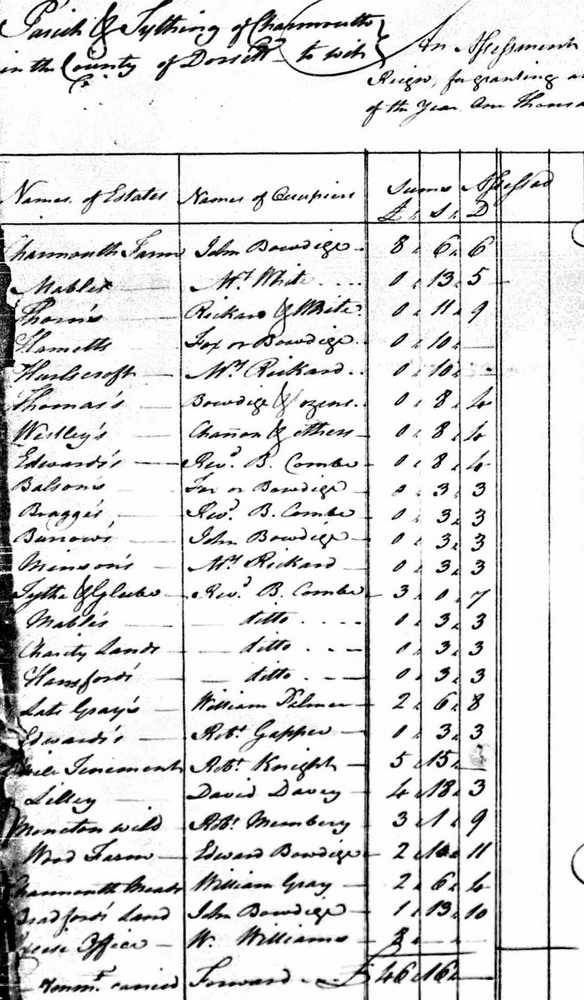 Parish & Tything of Charmouth
in the County of Dorsett to wit
An Assessment
Reign, for granting a
of the Year One Thousa
Names of Estates Names of Occupiers Sums Assessed
£ s D
Charmouth Farm John Bowdige 8 6 6
Mables Mrs White 0 13 5
Thorn's Rickard & White 0 11 9
Hametts Fox or Bowdige 0 10 —
Hurlscroft Mrs Rickard 0 10 —
Thomas's Bowdige & ozens 0 8 4
Westley's Channon & others 0 8 4
Edwards's Revd. B. Combe 0 8 4
Balsons Fox or Bowdige 0 3 3
Bragge's Revd. B. Combe 0 3 3
Burrows' John Bowdige 0 3 3
Minson's Mrs Rickard 0 3 3
Tythe & Glebe Revd. B. Combe 3 0 7
Mable's ditto 0 3 3
Charity Lands ditto 0 3 3
Hansford's ditto 0 3 3
Late Gray's William Dilmer 2 6 8
Edwards's Robt. Gapper 0 3 3
Tenement Robt. Knight 5 15 —
Lilley David Davey 4 18 3
Moncton wild Robt. Membery 3 1 9
Wood Farm Edward Bowdige 2 11
Charmouth Meads William Gray 2 6 4
Bradford's Land John Bowdige 1 13 10
Office W. Williams 8 — —
carried Forward £ 46 16 —